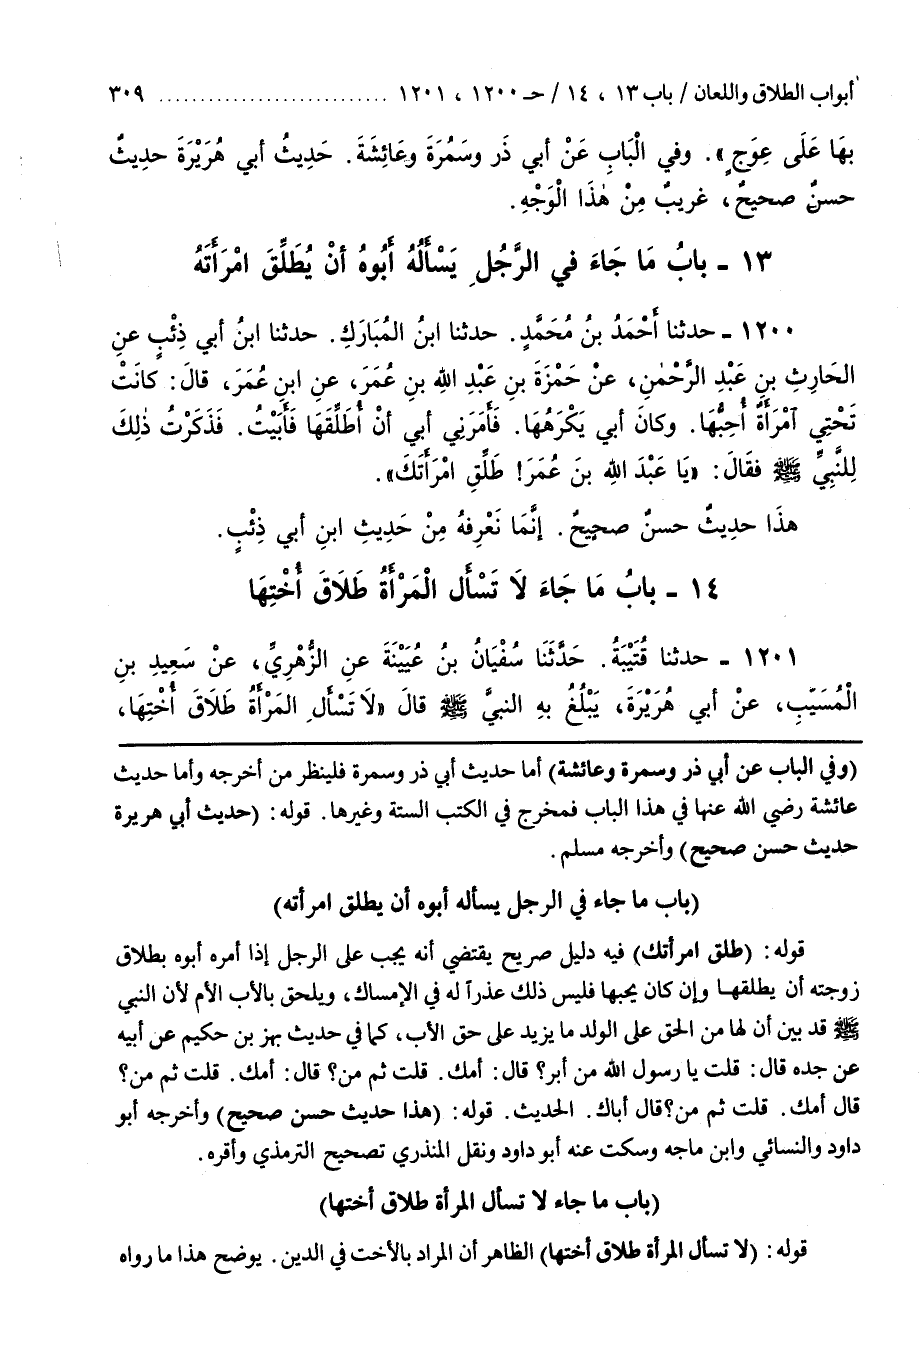 أبواب الطلاق واللعان / باب ١٣ ، ١٤ / حـ ١٢٠٠ ، ١٢٠١ ............................ ٣٠٩
بهَا عَلَى عِوَجٍ». وفي الْبَابِ عَنْ أبي ذَر وسَمُرَةَ وعَائِشَةَ. حَدِيثُ أبي هُرَيْرَةَ حديثٌ
حسنٌ صحيحٌ، غريبٌ مِنْ هٰذَا الْوَجْهِ.
١٣ ـ بابُ مَا جَاءَ في الرَّجُلِ يَسْأَلُهُ أَبُوهُ أنْ يُطَلِّقَ امْرَأَتَهُ
١٢٠٠ ـ حدثنا أَحْمَدُ بنُ مُحَمَّدٍ. حدثنا ابنُ المُبَارَكِ. حدثنا ابنُ أبي ذِئْبٍ عنِ
الحَارِثِ بنِ عَبْدِ الرَّحْمٰنِ، عنْ حَمْزَةَ بنِ عَبْدِ اللهِ بنِ عُمَرَ، عنِ ابنِ عُمَرَ، قالَ: كانَتْ
تَحْتِي آمْرَأَةٌ أُحِبُّهَا. وكانَ أبي يَكْرَهُهَا. فَأَمَرَنِي أبي أنْ أُطَلِّقَهَا فَأَبَيْتُ. فَذَكَرْتُ ذٰلِكَ
لِلنَّبيِّ ﷺ فقَالَ: «يَا عَبْدَ اللهِ بنَ عُمَرَ! طَلِّقِ امْرَأَتَكَ».
هذَا حديثٌ حسنٌ صحيحٌ. إنَّمَا نَعْرِفهُ مِنْ حَدِيثِ ابنِ أبي ذِئْبٍ.
١٤ ـ بابُ مَا جَاءَ لاَ تَسْأَل الْمَرْأَةُ طَلَاقَ أُخْتِهَا
١٢٠١ ـ حدثنا قُتَيْبَةُ. حَدَّثَنَا سُفْيَانُ بنُ عُيَيْنَةَ عنِ الزُّهْرِيِّ، عنْ سَعِيدِ بنِ
الْمُسَيّبِ، عنْ أبي هُرَيْرَةَ، يَبْلُغُ بهِ النبيَّ ﷺ قالَ «لاَ تَسْأَلِ المَرْأَةُ طَلَاقَ أُخْتِهَا،
(وفي الباب عن أبي ذر وسمرة وعائشة) أما حديث أبي ذر وسمرة فلينظر من أخرجه وأما حديث
عائشة رضي الله عنها في هذا الباب فمخرج في الكتب الستة وغيرها. قوله: (حديث أبي هريرة
حديث حسن صحيح) وأخرجه مسلم.
(باب ما جاء في الرجل يسأله أبوه أن يطلق امرأته)
قوله: (طلق امرأتك) فيه دليل صريح يقتضي أنه يجب على الرجل إذا أمره أبوه بطلاق
زوجته أن يطلقها وإن كان يحبها فليس ذلك عذراً له في الإمساك، ويلحق بالأب الأم لأن النبي
ﷺ قد بين أن لها من الحق على الولد ما يزيد على حق الأب، كما في حديث بهز بن حكيم عن أبيه
عن جده قال: قلت يا رسول الله من أبر؟ قال: أمك. قلت ثم من؟ قال: أمك. قلت ثم من؟
قال أمك. قلت ثم من؟قال أباك. الحديث. قوله: (هذا حديث حسن صحيح) وأخرجه أبو
داود والنسائي وابن ماجه وسكت عنه أبو داود ونقل المنذري تصحيح الترمذي وأقره.
(باب ما جاء لا تسأل المرأة طلاق أختها)
قوله: (لا تسأل المرأة طلاق أختها) الظاهر أن المراد بالأخت في الدين. يوضح هذا ما رواه